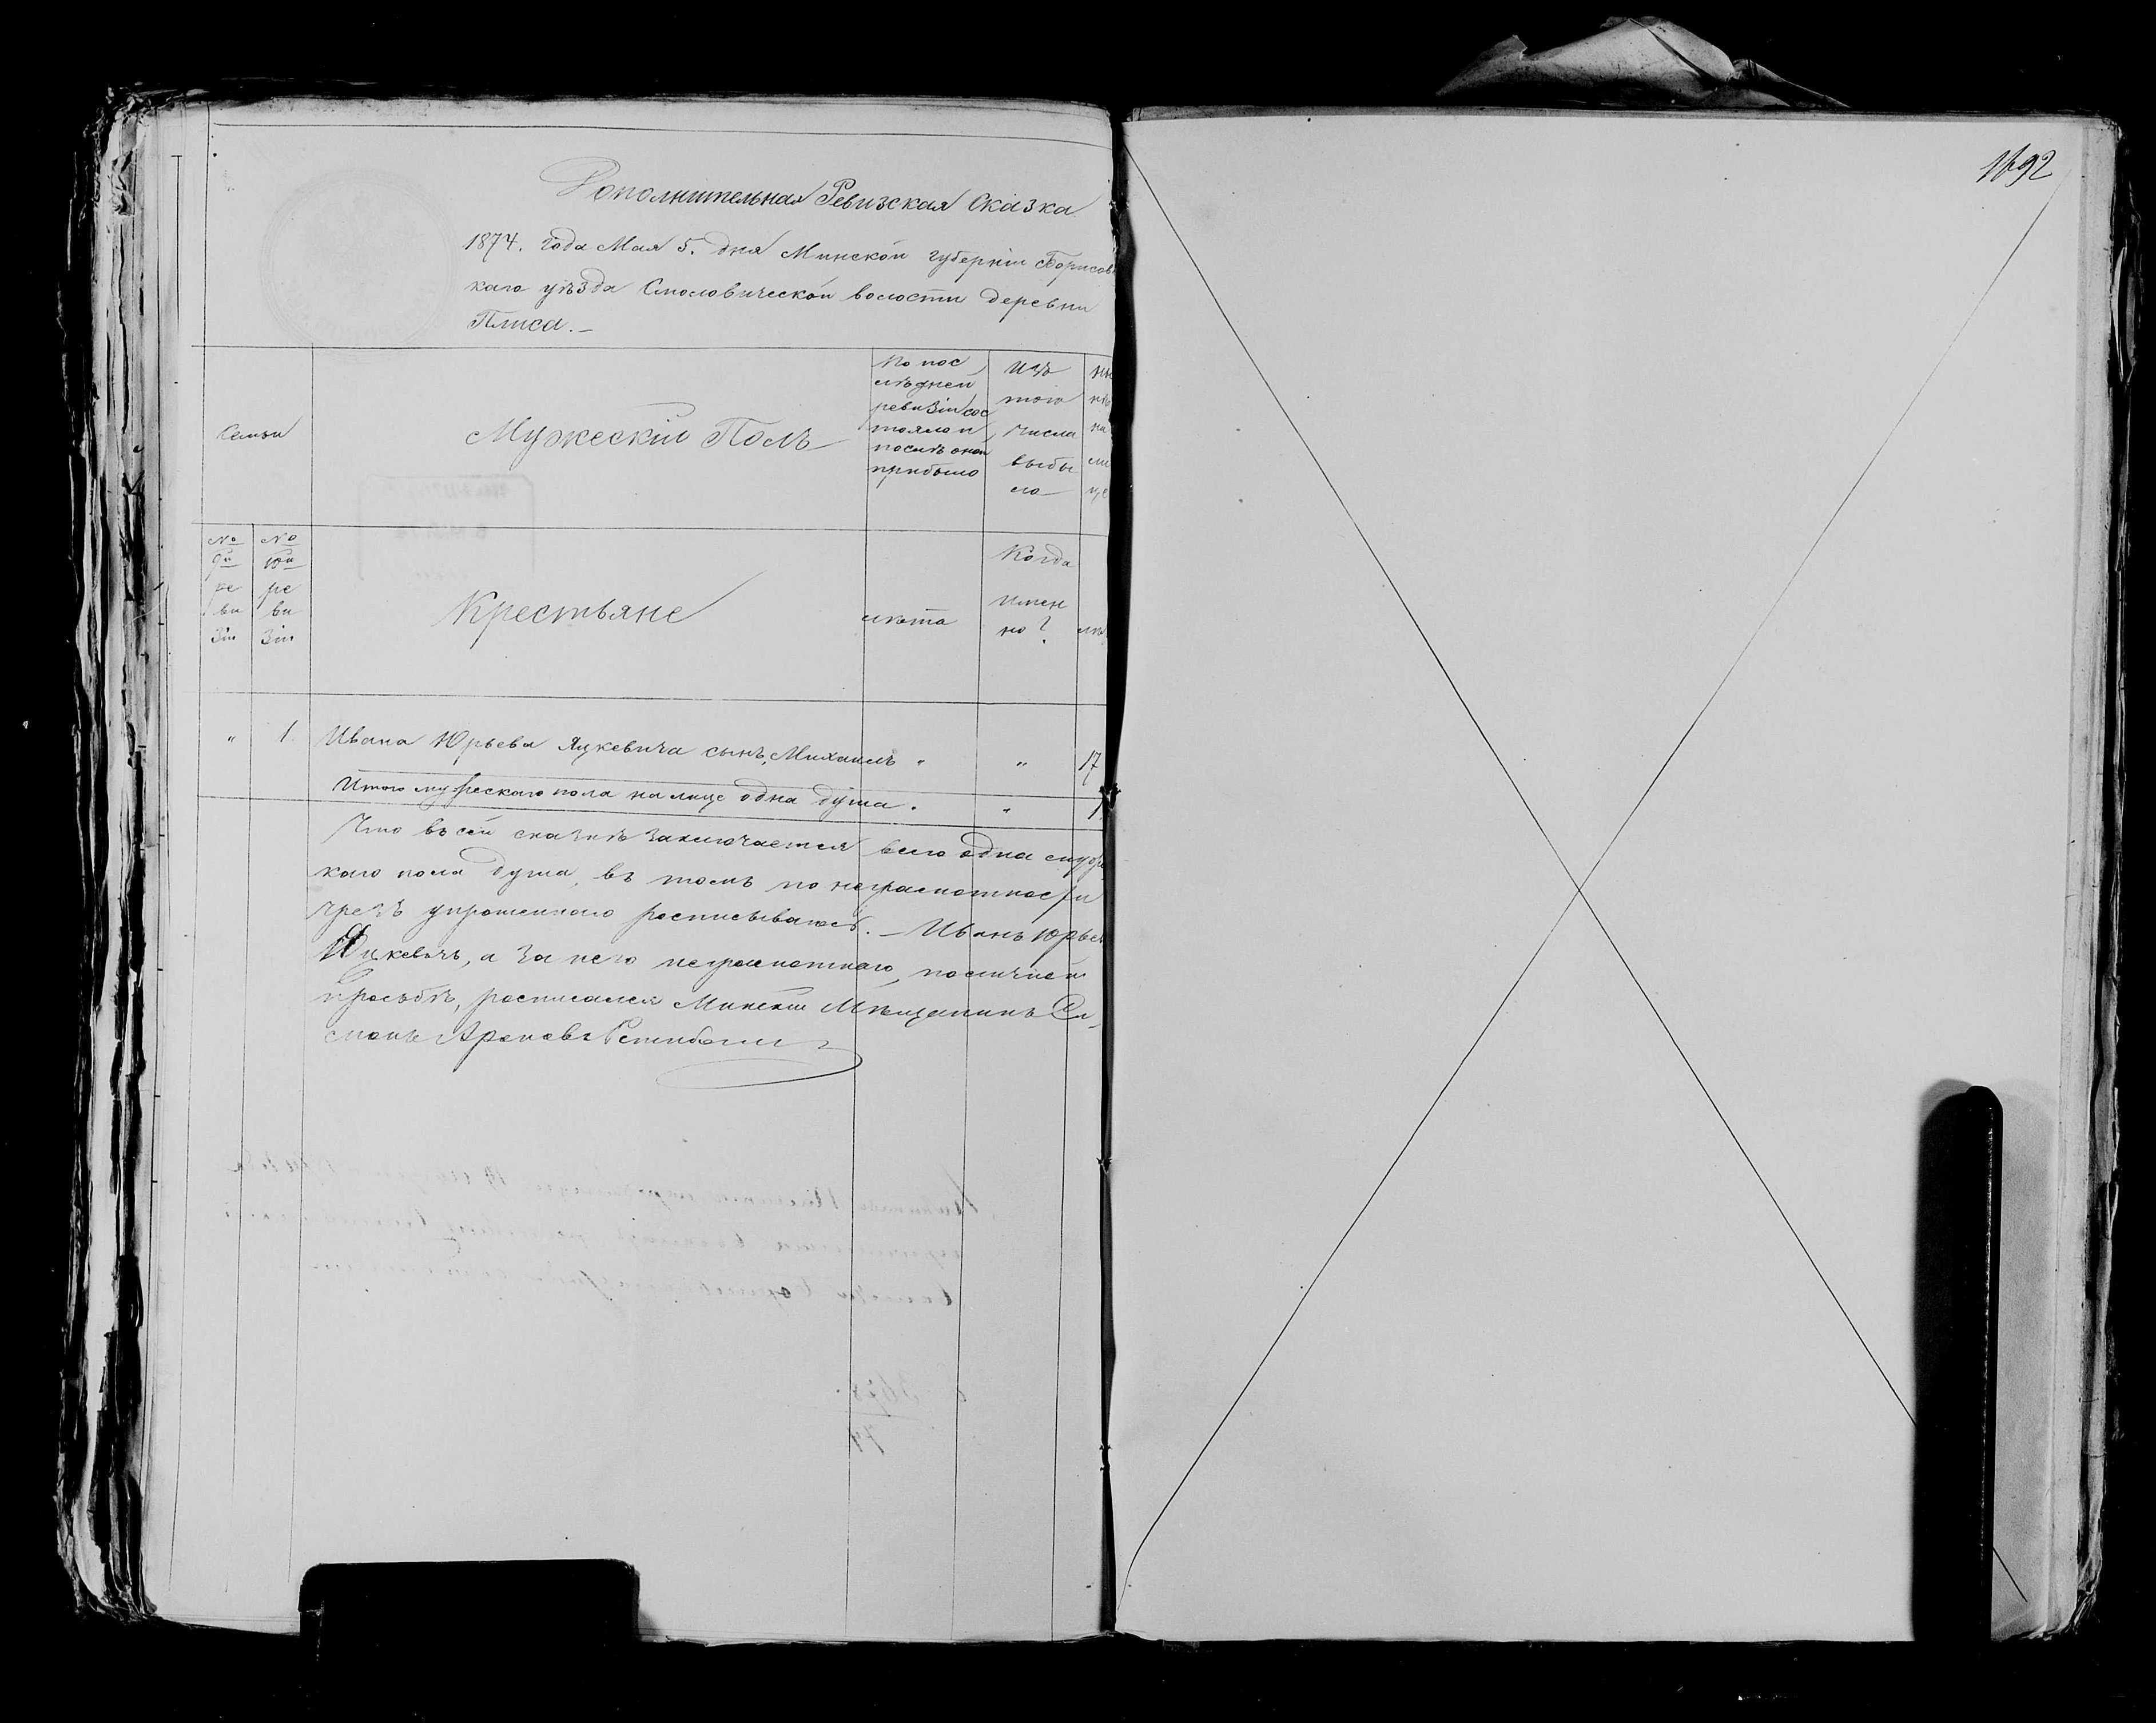 Дополнительная Ревизская Сказка
1874. года Мая 5. дня Минской губерніи Борисовс
каго уѣзда Смоловической волости деревни
Плиса.
Семьи
Мужескій Полъ
По пос
лѣдней
ревизіи сос
тояло и
послѣ оной
прибыло
Изъ
того
числа
выбы
ло
№
9й
ре
ви
зіи
№
10й
ре
ви
зіи
Крестьяне
лѣта
Когда
имен
но?
лѣ
" 1 Ивана Юрьева Яцкевича сынъ, Михаилъ " " 17
Итого мужескаго пола на лице одна душа. " 1
Что въ сей сказкѣ заключается всего одна мужес
каго пола душа, въ томъ по неграмотности
чрезъ упрошеннаго росписываюсь. Иванъ Юрьев
Яцкевичъ, а за него неграмотнаго, по личной
просьбѣ, росписался Минскій Мѣщанинъ
1692